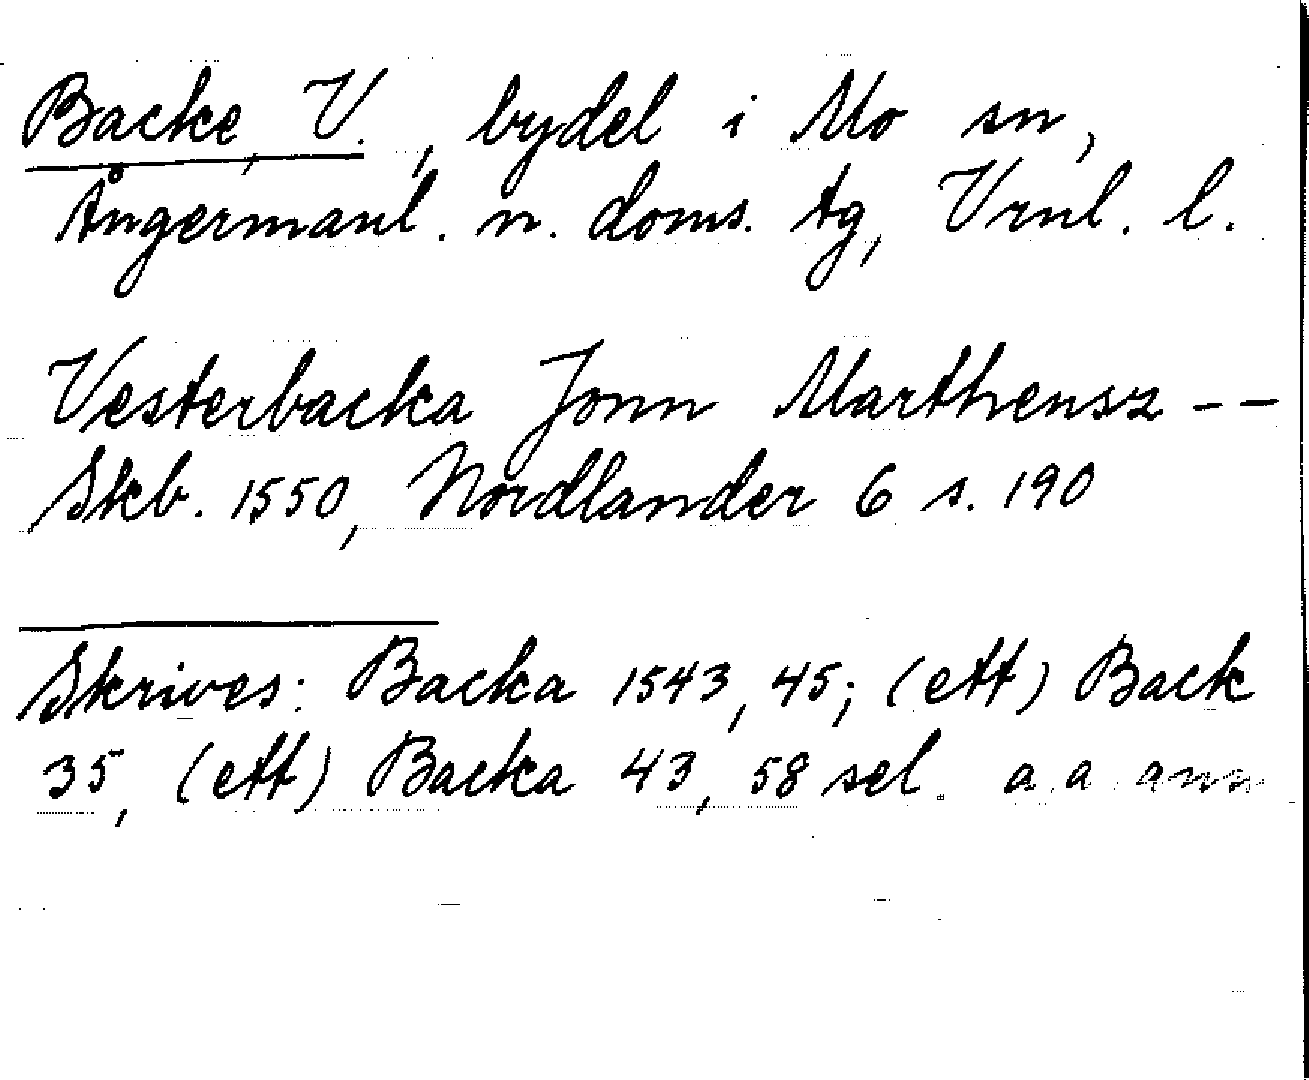 Backe, V., bydel i Mo sn,
Ångermanl. n. doms. tg, Vrnl. l.
Vesterbacka Jonn Marthensz --
Skb. 1550, Nordlander 6 s. 190
Skrives: Backa 1543, 45; (ett) Back
35, (ett) Backa 43, 58 sel. a a ann